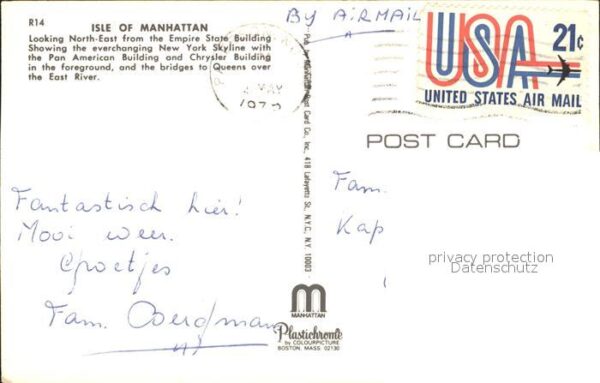 R14
ISLE OF MANHATTAN
Looking North-East from the Empire State Building
Showing the everchanging New York Skyline with
the Pan American Building and Chrysler Building
in the foreground, and the bridges to Queens over
the East River.
By AiRMAiL
USA 21¢
UNITED STATES AIR MAIL
MAY
POST CARD
Fantastisch hier!
Mooi weer.
Groetjes
Fam.
Card Co., Inc., 418 Lafayette St., N.Y.C., N.Y. 10003
Fam.
Kap
privacy protection
Datenschutz
m
MANHATTAN
Plastichrome
by COLOURPICTURE
BOSTON, MASS. 02130